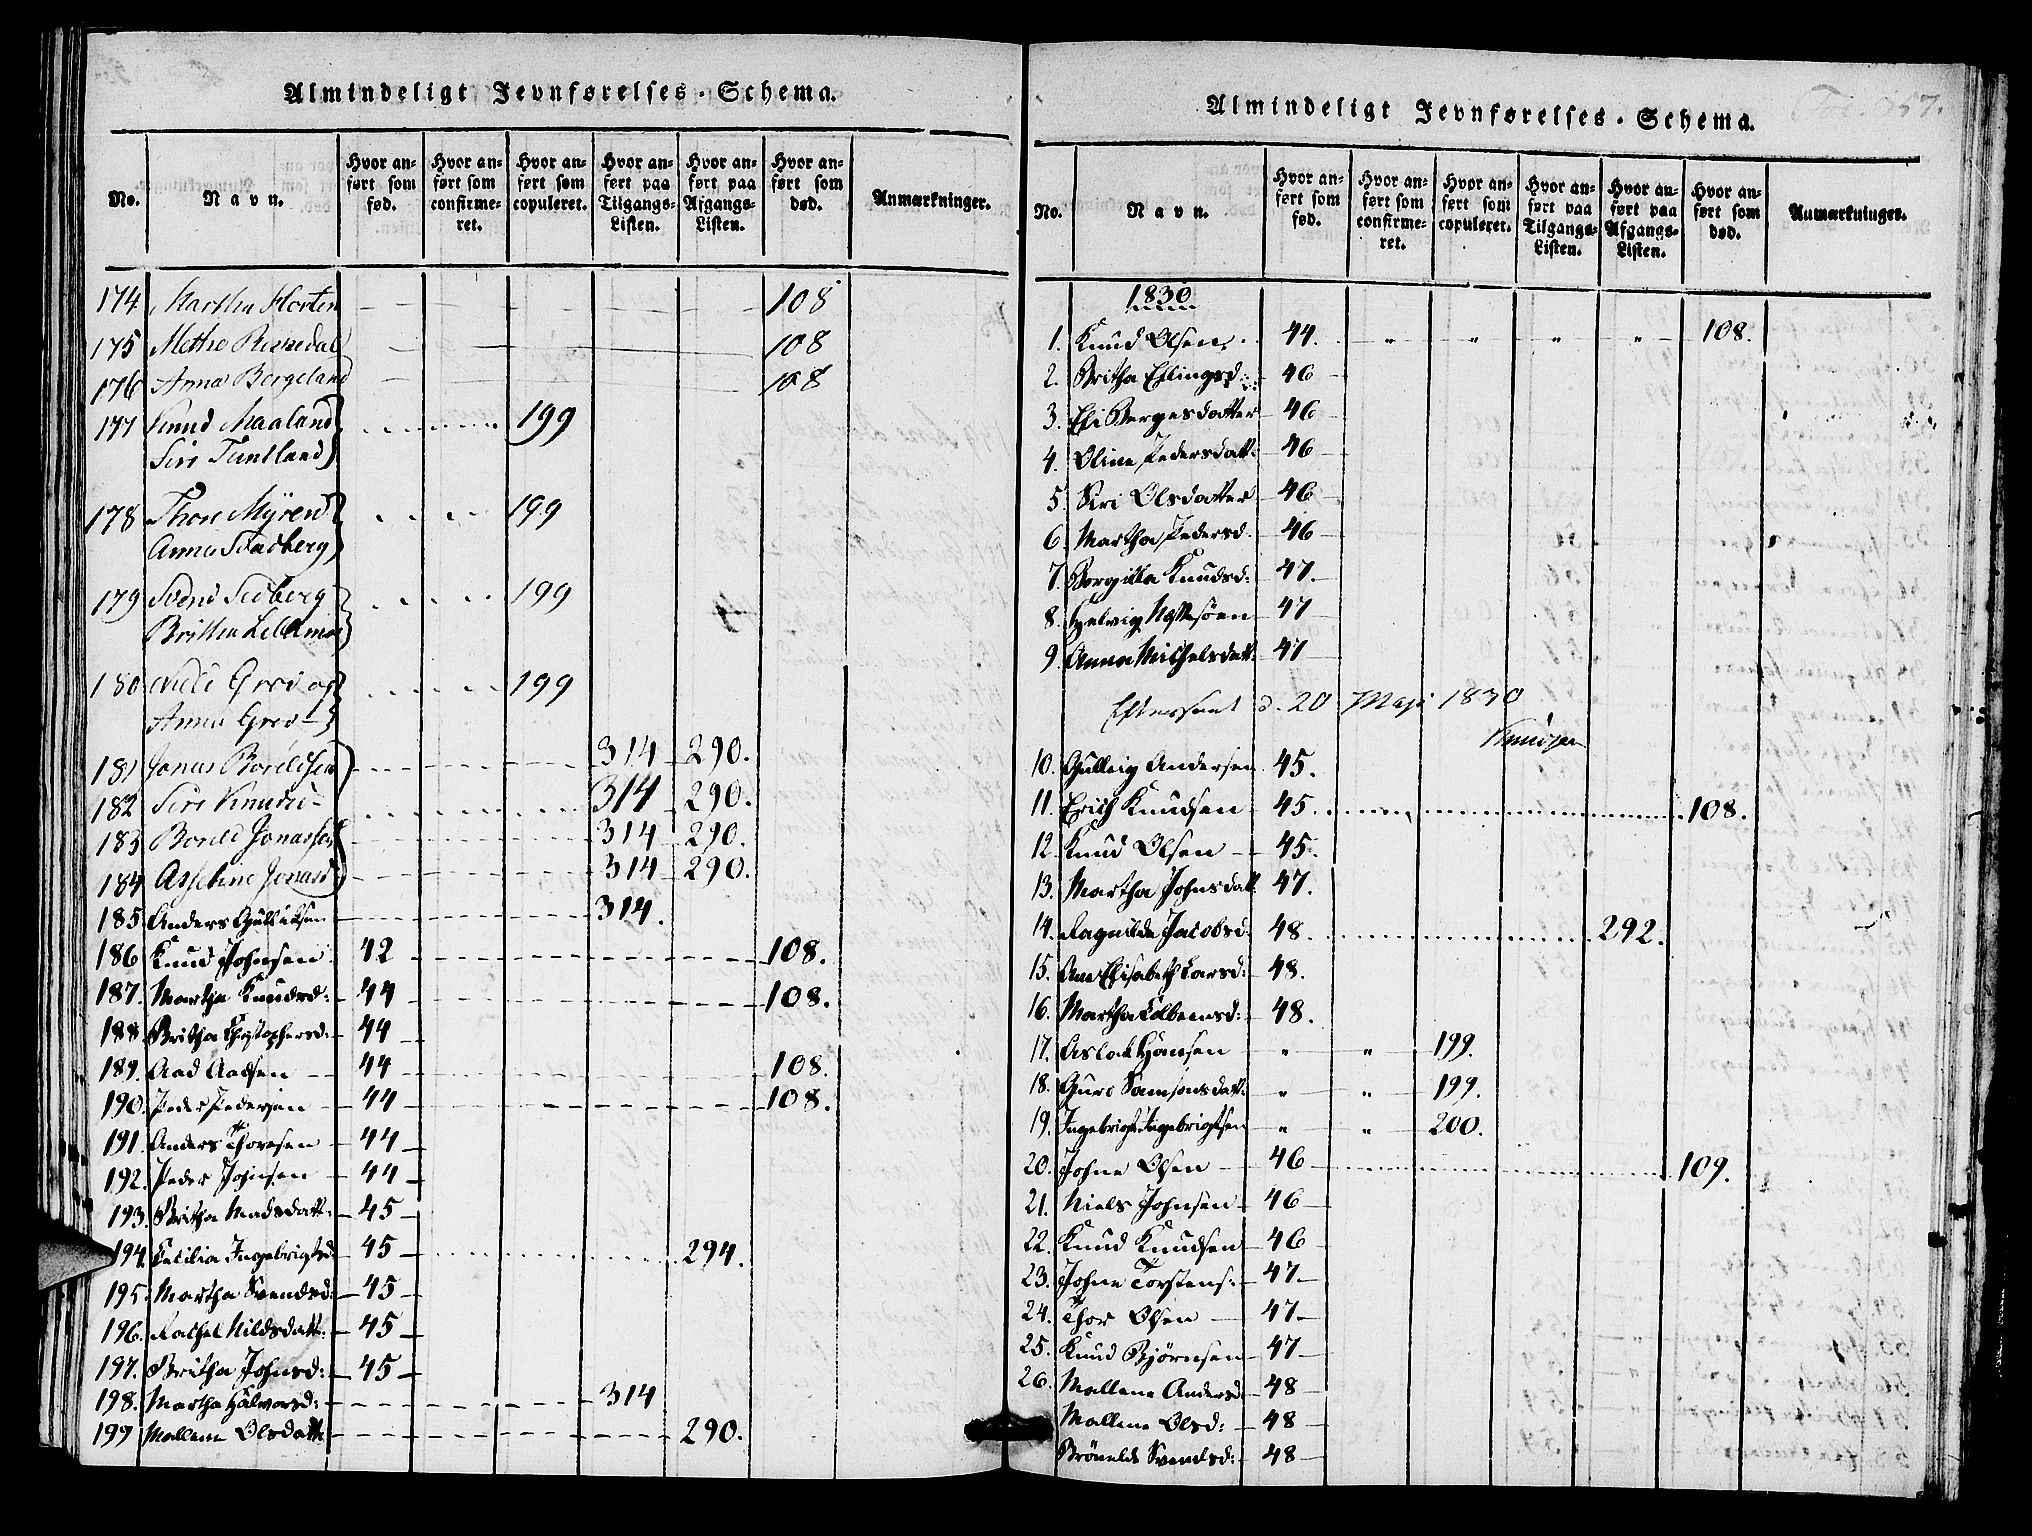 Almindeligt Jevnførelses-Schema.
No. Navn. Hvor anført som fød. Hvor anført som confirmeret. Hvor anført som copuleret. Hvor anført paa Tilgangs-Listen. Hvor anført paa Afgangs-Listen. Hvor anført som død. Anmærkninger.
174 Martha Horten 108
175 Methe 108
176 Anna Bergeland 108
177 Knud Maaland 199
Siri
178 Thore Myren 199
Anna Stadberg
179 Svend Sedberg 199
Britha
180 Niels Gred og 199
Anna Gred
181 Jonas Boreldsen 314 290.
182 Siri Knudsd 314 290.
183 Boreld Jonassen 314 290.
184 Asseline Jonasd 314 290.
185 Anders Gulliksen 314.
186 Knud Johnsen 42 108.
187. Martha Knudsd: 44 108.
188 Britha Christophersd: 44
189. Aad Aadsen 44 108.
190. Peder Pedersen 44 108.
191. Anders Thoresen 44
192. Peder Johnsen 44
193. Britha Madsdatt: 45
194. Cecilia Ingebrigtsd: 45 294.
195. Martha Svendsd: 45
196. Rachel Nilsdatt: 45
197. Britha Johnsd: 45
198. Martha Halvorsd: 314
199 Mallene Olsdatt: 290.
Almindeligt Jevnførelses-Schema.
No. Navn. Hvor anført som fød. Hvor anført som confirmeret. Hvor anført som copuleret. Hvor anført paa Tilgangs-Listen. Hvor anført paa Afgangs-Listen. Hvor anført som død. Anmærkninger.
1830
1. Knud Olsen 44. " " " " 108.
2. Britha Erlingsd: 46
3. Eli Bergesdatter 46
4. Oline Pedersdatt: 46
5. Siri Olsdatter 46
6. Martha Pedersd. 46
7. Borgilla Knudsd: 47.
8. Helvig 47
9. Anna Michelsdatt: 47
Efterseet d. 20 Maji 1830
10. Gulleig Andersen 45.
11. Erich Knudsen 45. 108.
12. Knud Olsen 45.
13. Martha Johnsdatt. 47.
14. Ragnilde Jacobsd: 48. 292.
15. Ane Elisabeth Larsd: 48.
16. Martha Colbensd: 48.
17. Aslak Hansen " " 199.
18. Guro Samsonsdatt: " " 199.
19. Ingebrigt Ingebrigtsen " " 200.
20. Johne Olsen 46 109.
21. Niels Johnsen 46
22. Knud Knudsen 46
23. Johne Torstens: 47
24. Thor Olsen 47
25. Knud Bjørnsen 47
26. Mallene Andersd 48
Mallene Olsd: 48
Brönelde Svendsd: 48